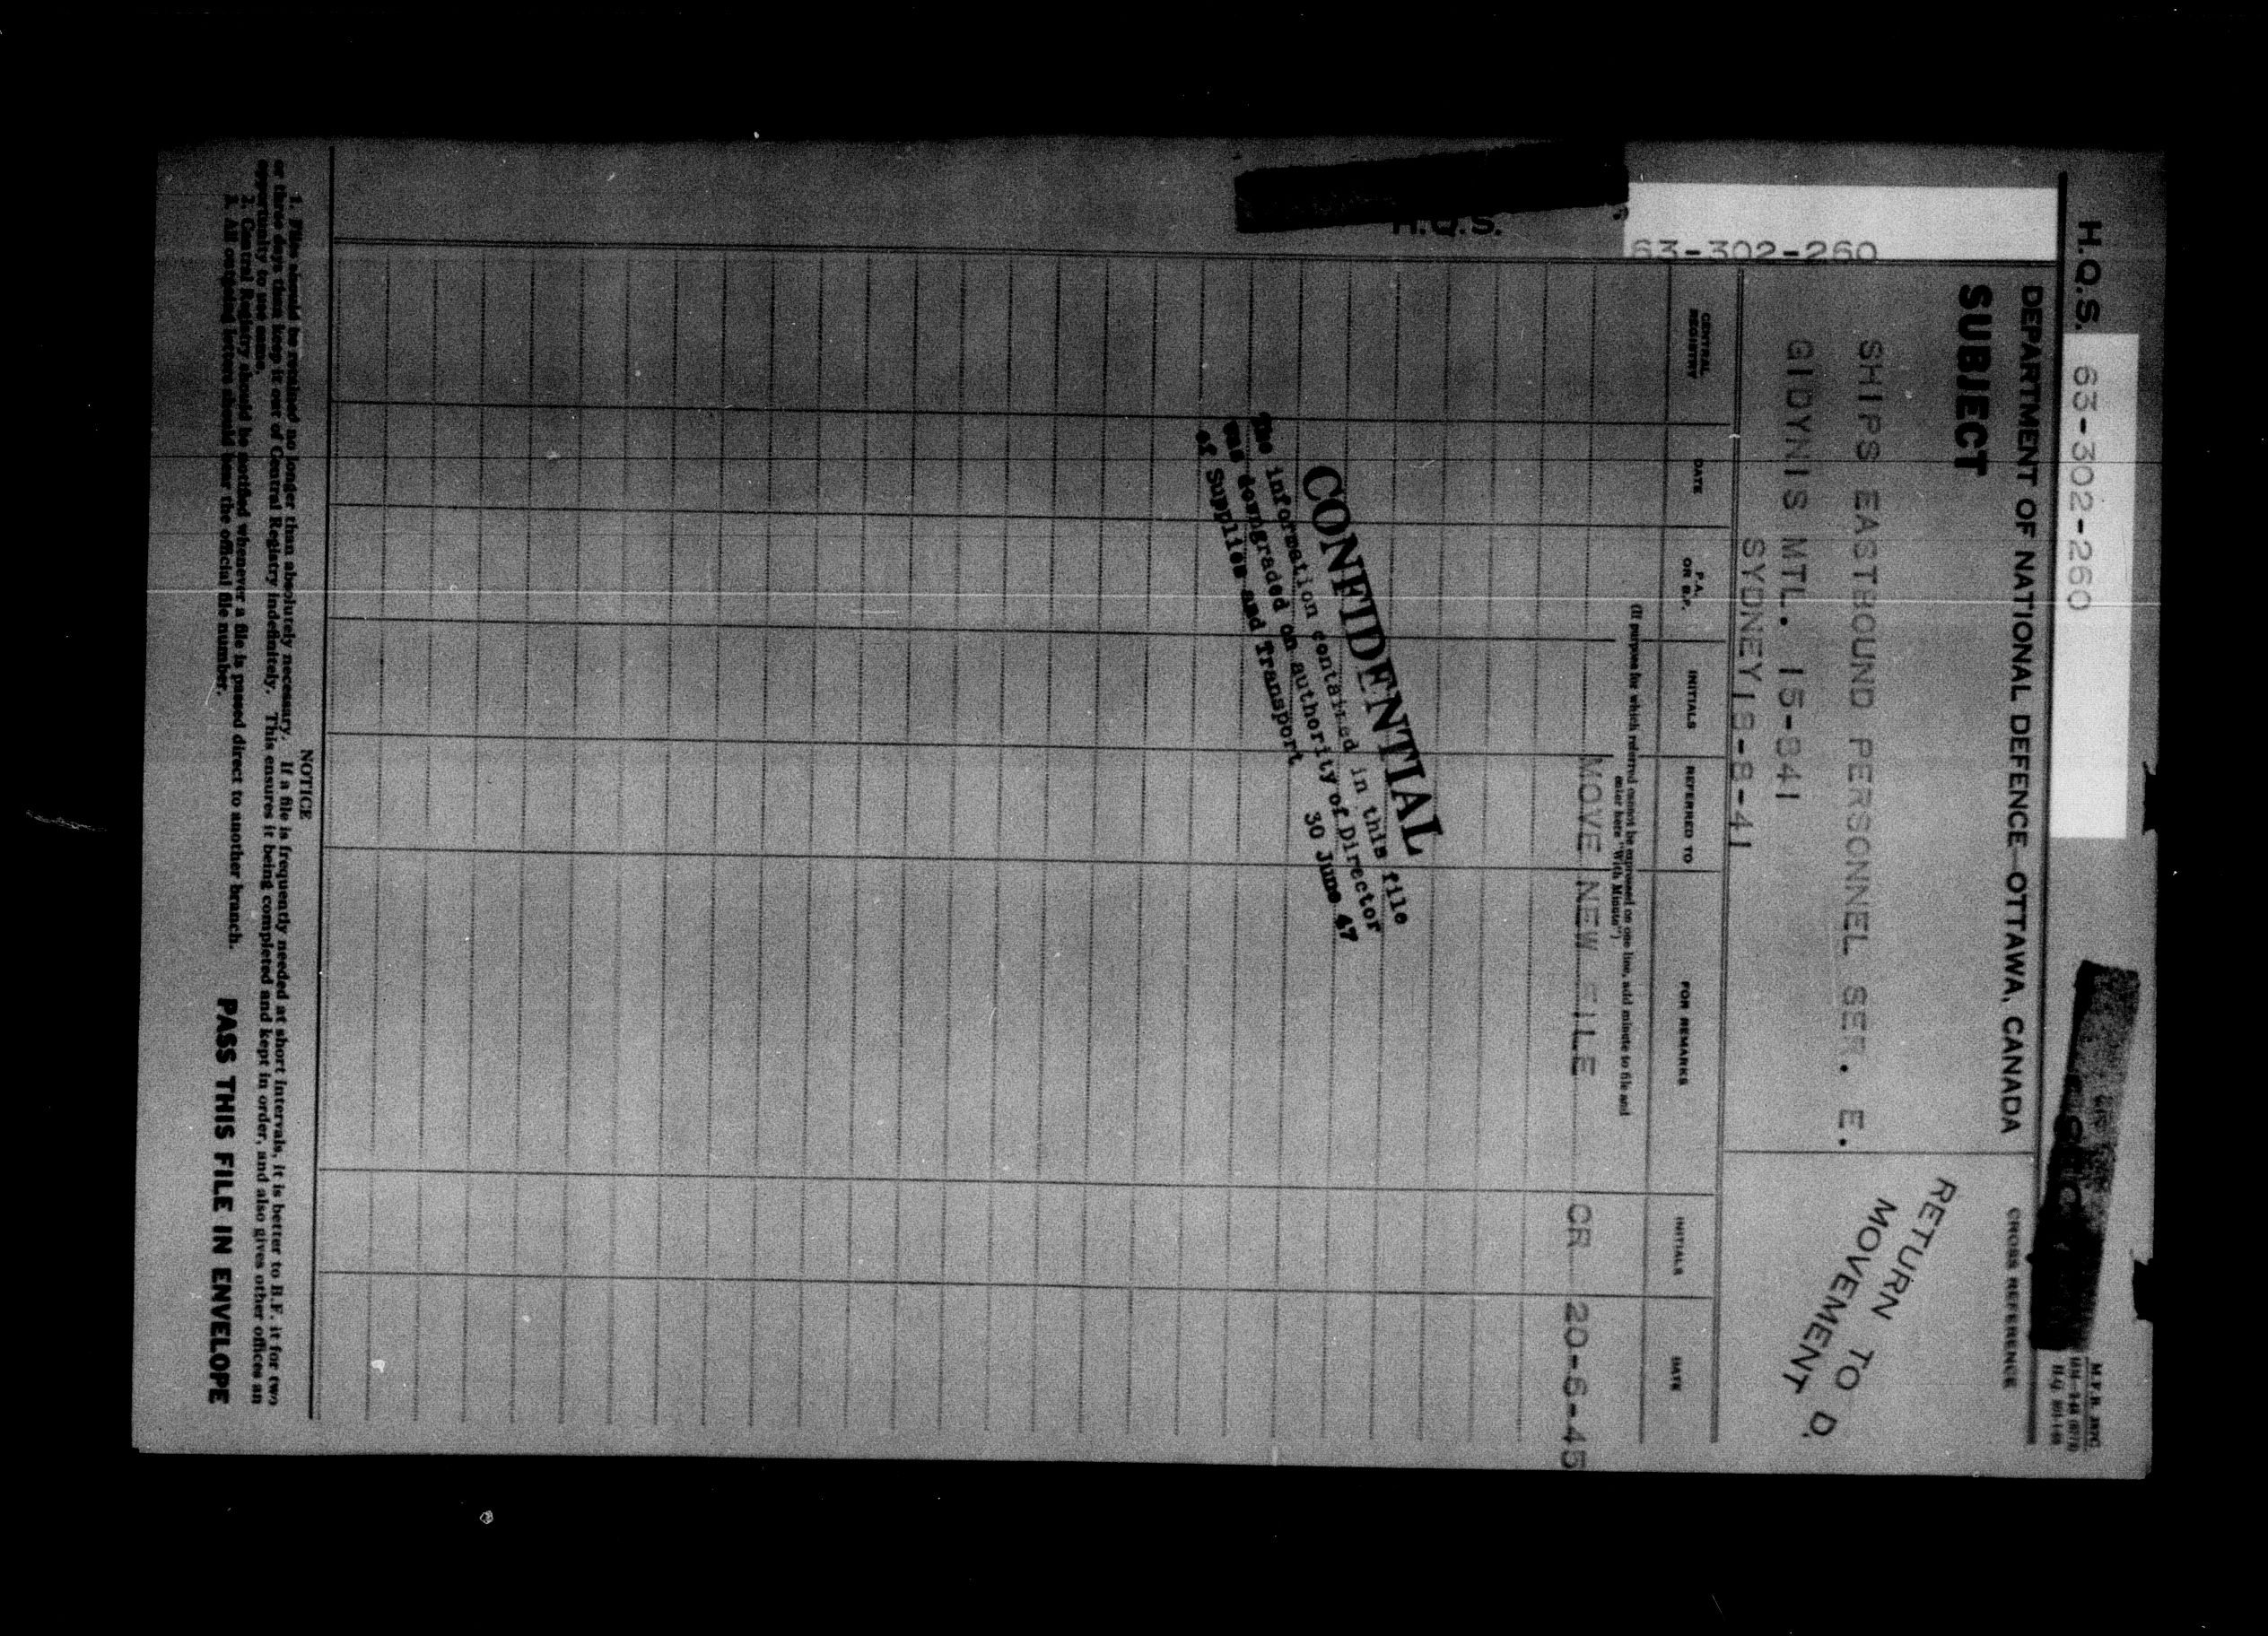 H.Q.S. 63-302-260
DEPARTMENT OF NATIONAL DEFENCE—OTTAWA, CANADA
CROSS REFERENCE
SUBJECT
SHIPS EASTBOUND PERSONNEL SER. E.
GIDYNIS MTL. 15-841
SYDNEY 18-8-41
RETURN TO D.
MOVEMENT
63-302-260
H.Q.S.
CENTRAL REGISTRY
DATE
P.A. OR B.F.
INITIALS
REFERRED TO
FOR REMARKS
INITIALS
DATE
(If purpose for which referred cannot be expressed on one line, add minute to file and
enter here "With Minute")
MOVE NEW FILE CR 20-6-45
CONFIDENTIAL
The information contained in this file
was downgraded on authority of Director
of Supplies and Transport 30 June 47
NOTICE
1. Files should be retained no longer than absolutely necessary. If a file is frequently needed at short intervals, it is better to B.F. it for two
or three days than keep it out of Central Registry indefinitely. This ensures it being completed and kept in order, and also gives other offices an
opportunity to use same.
2. Central Registry should be notified whenever a file is passed direct to another branch.
3. All outgoing letters should bear the official file number.
PASS THIS FILE IN ENVELOPE